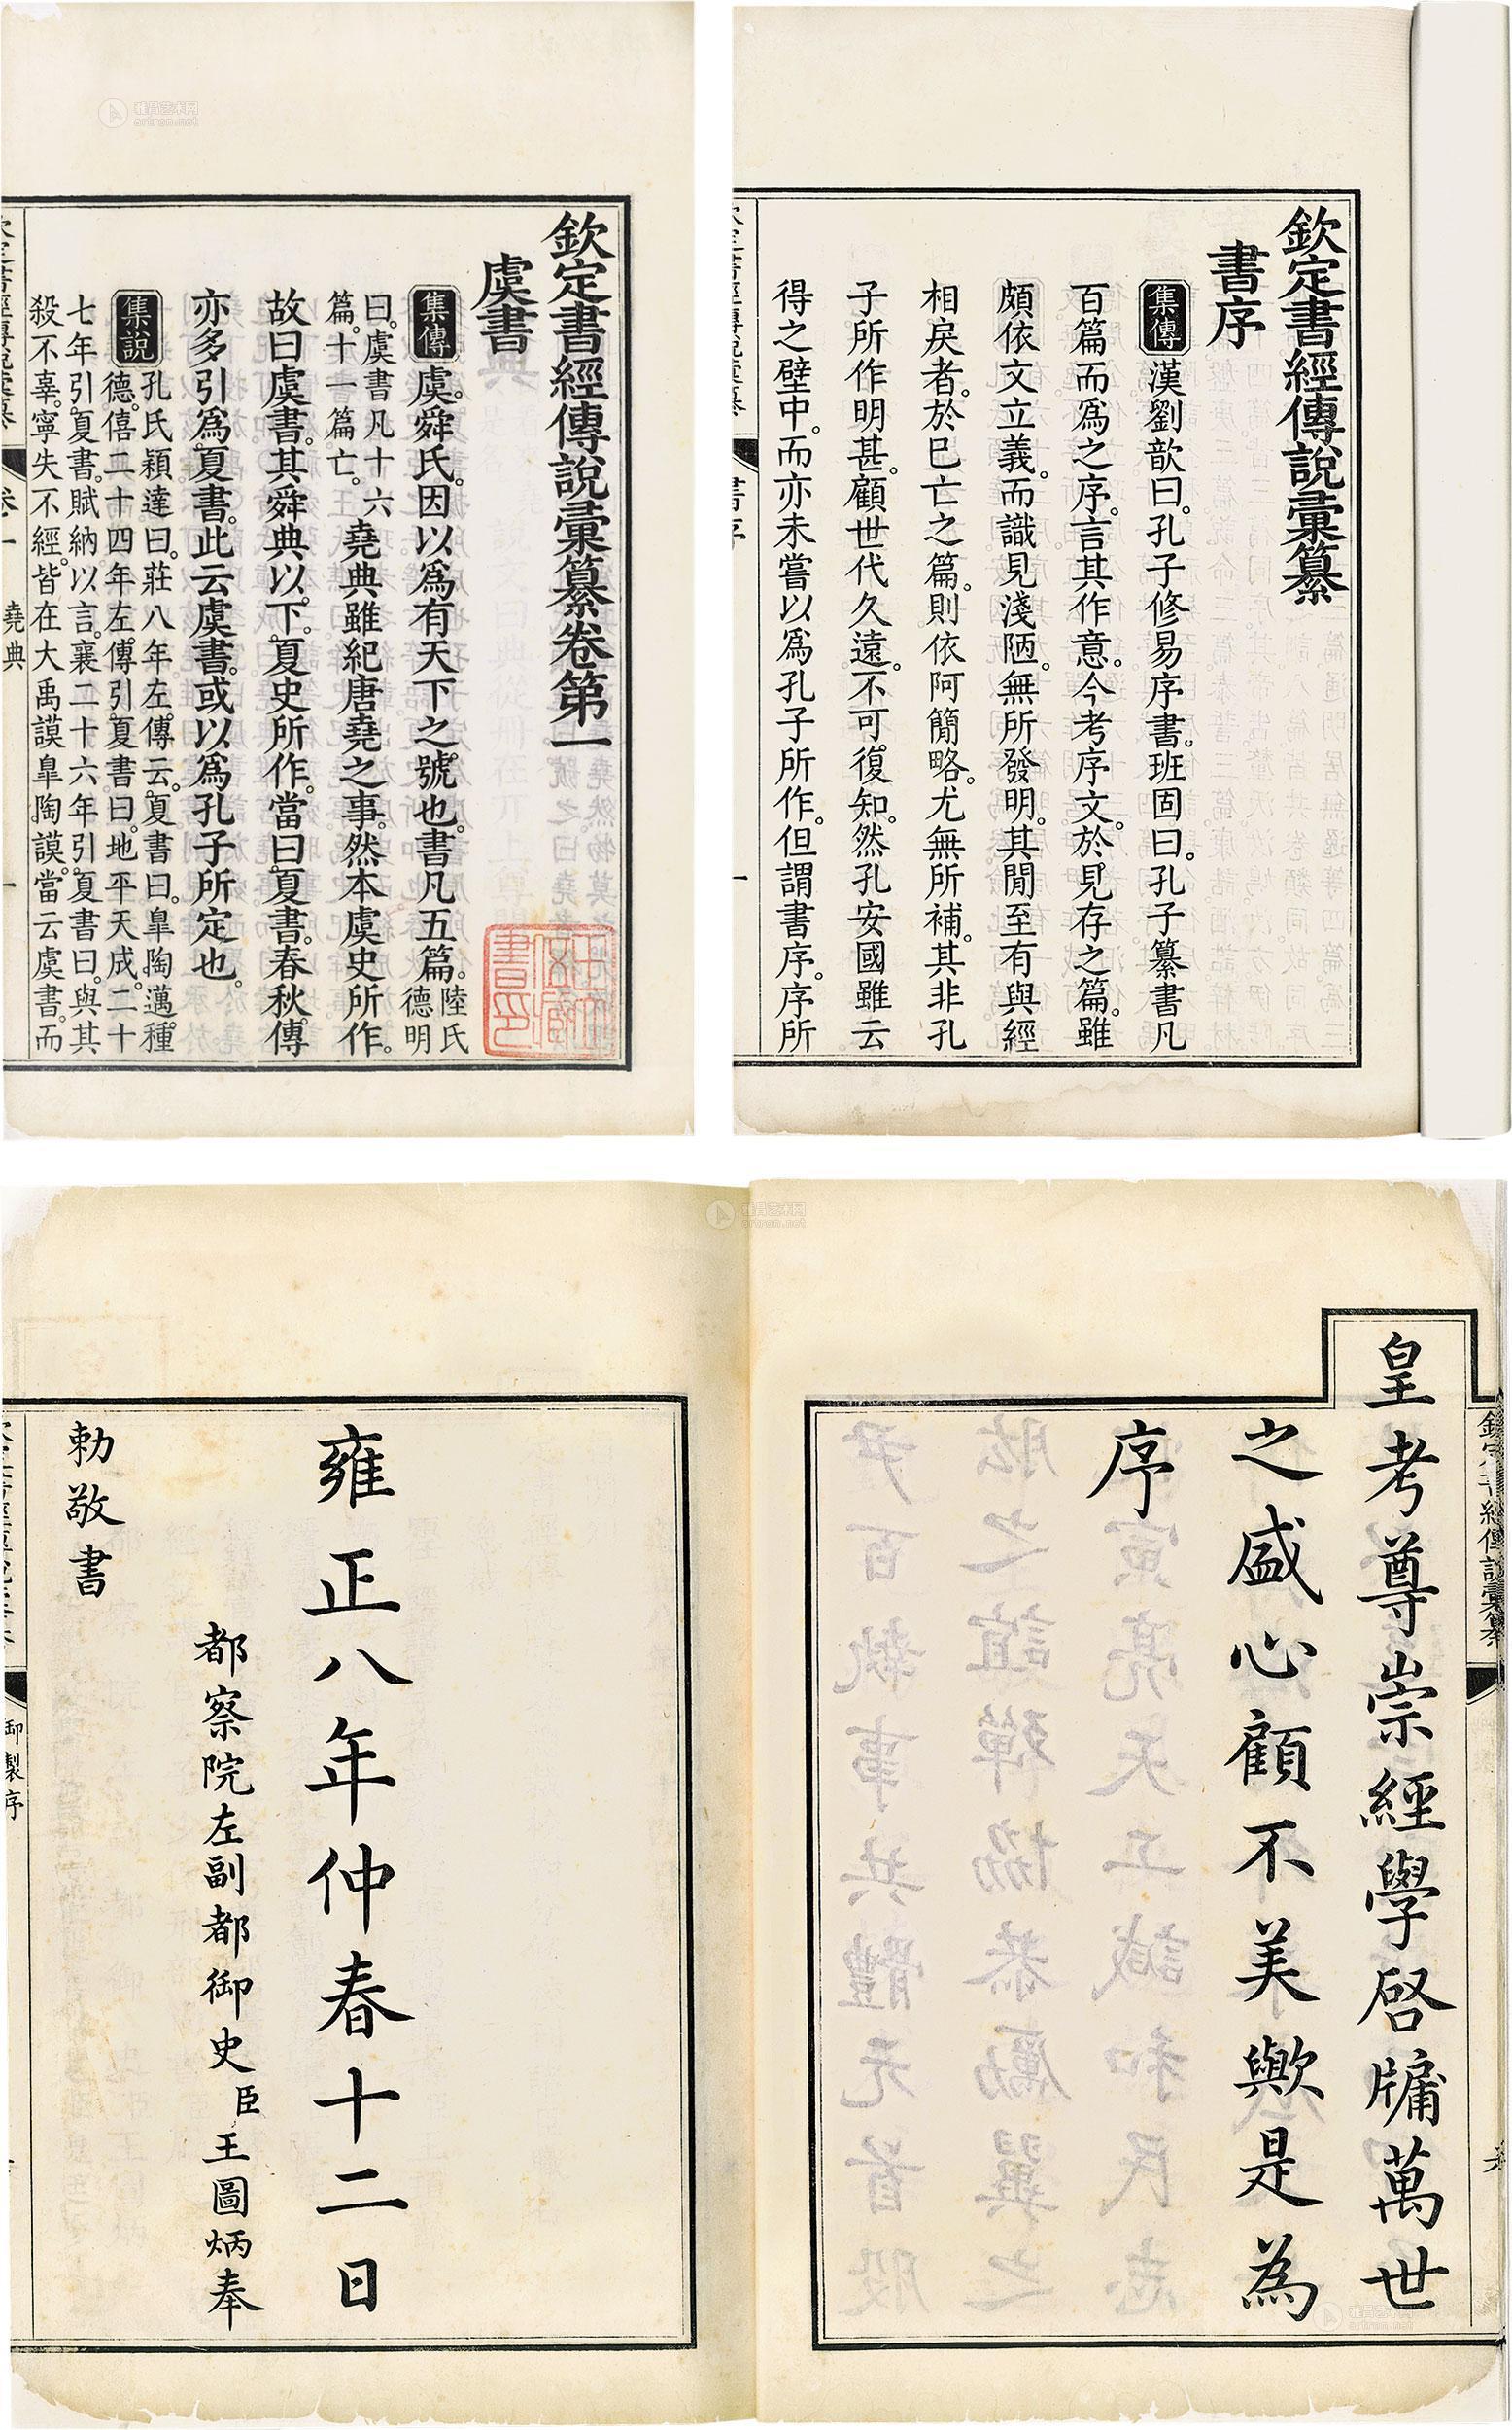 欽定書經傳說彙纂
書序
集傳 漢劉歆曰。孔子修易序書。班固曰。孔子纂書凡
百篇而爲之序。言其作意。今考序文。於見存之篇。雖
頗依文立義。而識見淺陋。無所發明。其閒至有與經
相戾者。於已亡之篇。則依阿簡略。尤無所補。其非孔
子所作明甚。顧世代久遠。不可復知。然孔安國雖云
得之壁中。而亦未嘗以爲孔子所作。但謂書序。序所
書序
一
欽定書經傳說彙纂卷第一
虞書
集傳 虞。舜氏。因以爲有天下之號也。書凡五篇。陸氏德明
曰。虞書凡十六篇。十一篇亡。 堯典雖紀唐堯之事。然本虞史所作。
故曰虞書。其舜典以下。夏史所作。當曰夏書。春秋傳
亦多引爲夏書。此云虞書。或以爲孔子所定也。
集說 孔氏穎達曰。莊八年左傳云。夏書曰。皐陶邁種
德。僖二十四年左傳引夏書曰。地平天成。二十
七年引夏書。賦納以言。襄二十六年引夏書曰。與其
殺不辜。寧失不經。皆在大禹謨皐陶謨。當云虞書。而
卷一 堯典
一
欽定書經傳說彙纂
皇考尊崇經學啓牖萬世
之盛心顧不美歟是為
序
雍正八年仲春十二日
都察院左副都御史臣王圖炳奉
勅敬書
御製序
雅昌艺术网
artron.net
雅昌艺术网
artron.net